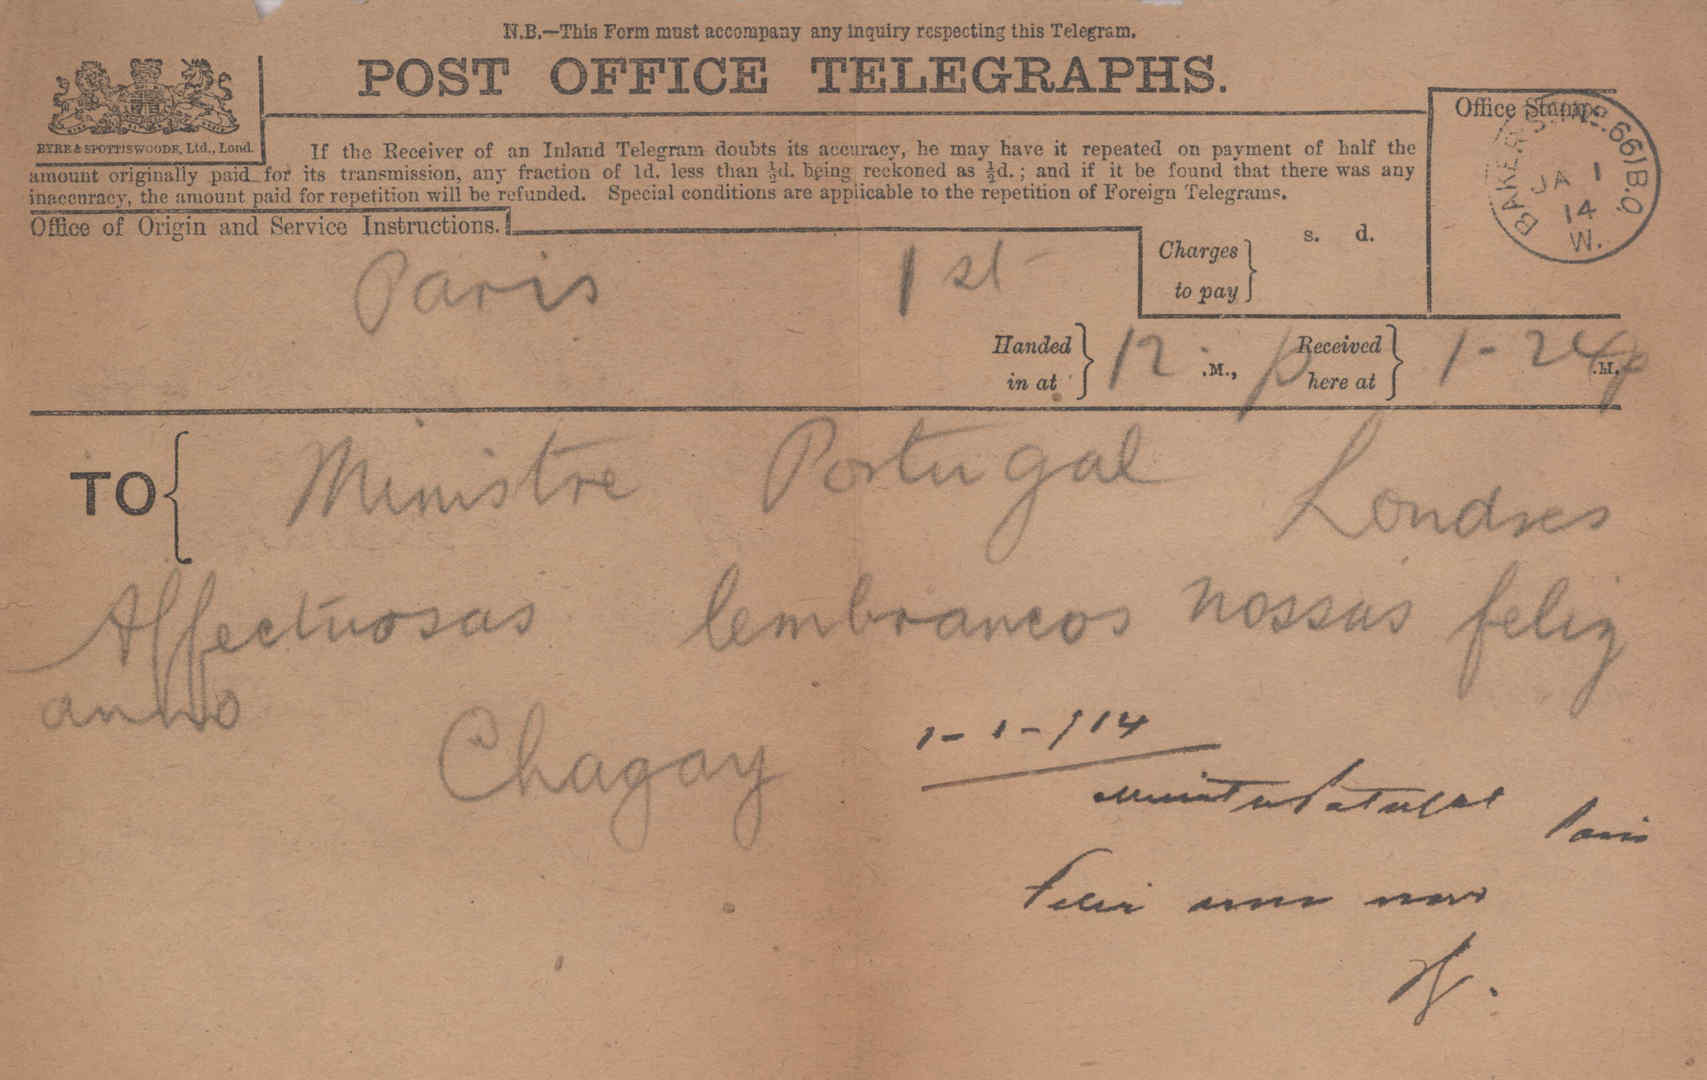 N.B.—This Form must accompany any inquiry respecting this Telegram.
POST OFFICE TELEGRAPHS.
EYRE & SPOTTISWOODE, Ltd., Lond.
If the Receiver of an Inland Telegram doubts its accuracy, he may have it repeated on payment of half the
amount originally paid for its transmission, any fraction of 1d. less than ½d. being reckoned as ½d.; and if it be found that there was any
inaccuracy, the amount paid for repetition will be refunded. Special conditions are applicable to the repetition of Foreign Telegrams.
Office Stamp.
BAKER ST. No. 66) B.O.
JA 1
14
W.
Office of Origin and Service Instructions.
Charges to pay
s. d.
Paris 1st
Handed in at 12 .M., p
Received here at 1-24 p .M.
TO
Ministre Portugal Londres
Affectuosas lembrancos nossas feliz
anno
Chagay
1-1-914
Ministro Portugal Paris
Feliz anno novo